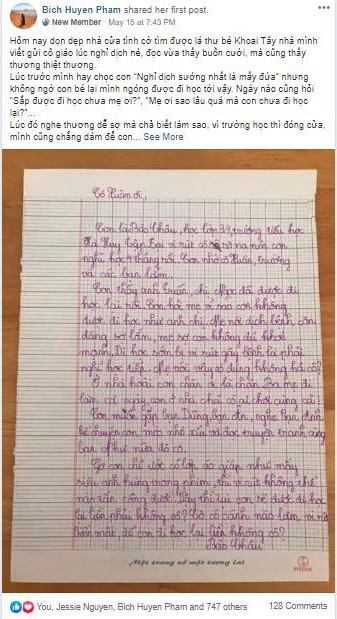 Bich Huyen Pham shared her first post.
New Member · May 15 at 7:43 PM
Hôm nay dọn dẹp nhà cửa tình cờ tìm được lá thư bé Khoai Tây nhà mình
viết gửi cô giáo lúc nghỉ dịch nè, đọc vừa thấy buồn cười, mà cũng thấy
thương thiệt thương.
Lúc trước mình hay chọc con "Nghỉ dịch sướng nhất là mấy đứa" nhưng
không ngờ con bé lại mình ngóng được đi học tới vậy. Ngày nào cũng hỏi
"Sắp được đi học chưa mẹ ơi?", "Mẹ ơi sao lâu quá mà con chưa đi học
lại?"...
Lúc đó nghe thương dễ sợ mà chả biết làm sao, vì trường học thì đóng cửa,
mình cũng chẳng dám để con... See More
Cô Xuân ơi,
Con là Bảo Châu, học lớp 3/1, trường tiểu học
Hà Huy Tập. Tại vi rút cô rô na nên con
nghỉ học 4 tháng rồi. Con nhớ cô Xuân, trường
và các bạn lắm.
Con thấy anh Tuấn, chị Ngọc đã được đi
học lại rồi. Con hỏi mẹ vì sao con không
được đi học như anh chị. Mẹ nói dịch bệnh còn
đáng sợ lắm, mẹ sợ con không đủ khoẻ
mạnh. Đi học sớm bị vi rút gây bệnh là phải
nghỉ học tiếp. Mẹ nói vậy có đúng không hả cô?
Ở nhà hoài con chán ơi là chán. Ba mẹ đi
làm cả ngày, con ở nhà chả có ai chơi cùng cả!
Con muốn gặp bạn Dũng, bạn Ân, nghe bạn Định
kể chuyện con ma nhà xí và đọc truyện tranh cùng
bạn Như nữa đó cô.
Cô ơi chỉ ước có lớp áo giáp như mấy
siêu anh hùng trong phim, thì vi rút không thể
nào tấn công được. Vậy thì tụi con sẽ được đi học
lại liền phải không cô? Cô có cách nào làm vi rút
biến mất, để con đi học lại liền không cô?
Bảo Châu
Một trang vở một tương lai
You, Jessie Nguyen, Bich Huyen Pham and 747 others
128 Comments